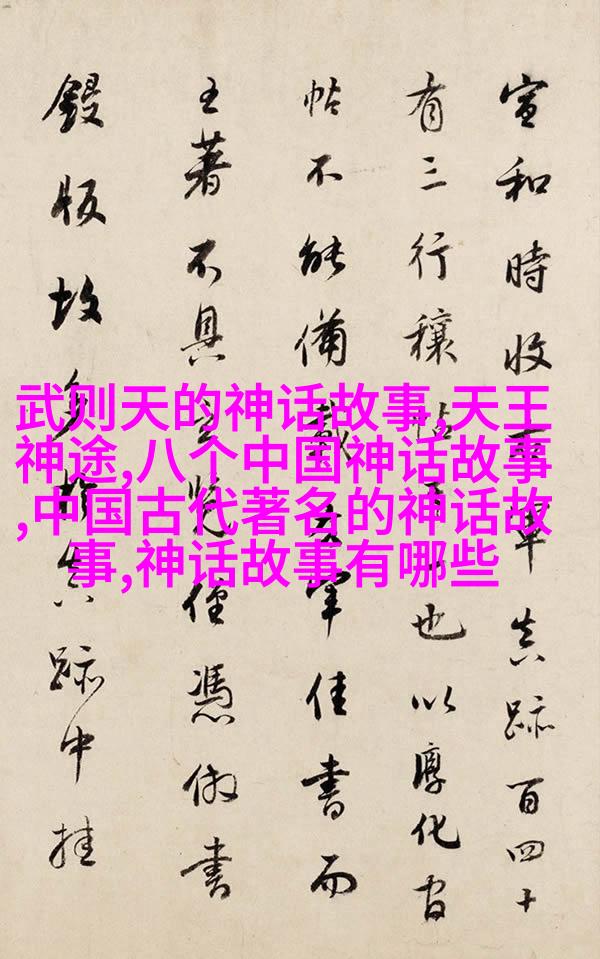 武则天的神话故事,天王
神途,八个中国神话故事
,中国古代著名的神话故
事,神话故事有哪些
宣和時收軍真跡百四十
有三行穰帖也以淳化官
帖不能備載軍佳書而
王著不具覽僅憑倣書
鋟版故多真跡中挂